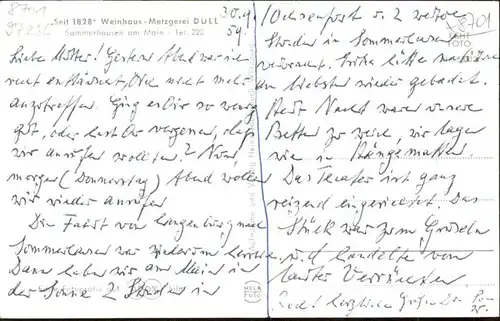 8701
97286
„Seit 1828" Weinhaus-Metzgerei DÜLL
Sommerhausen am Main - Tel. 220
30.9.
59.
Liebe Mutter! Gestern Abend war ich
recht enttäuscht, Dich nicht mehr
anzutreffen. Ging es Dir so wenig
gut, oder hast Du vergessen, daß
wir anrufen wollten? Nun,
morgen (Donnerstag) Abend wollen
wir wieder anrufen
Die Fahrt von Langenburg nach
Sommerhausen war wiederum
Dann haben wir am Main in
der Sonne 2 Stunden in
Ochsenfurt u. 2 weitere
Stunden in Sommerhausen
verbracht. Erika hätte
am liebsten wieder gebadet.
Heut Nacht waren unsere
Betten zu weich, wir lagen
wie in Hängematten.
Das Theater ist ganz
reizend eingerichtet. Das
Stück war zum Gruseln
u. handelte von
lauter Verrückten
herzliche Grüße Die
8701
HELA
FOTO